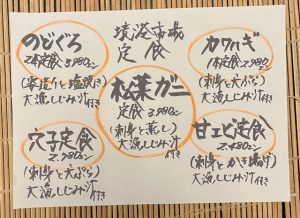 境港市場
定食
のどぐろ
2本定食 3,980エン
(煮付けと塩焼き)
大漁しじみ汁付き
カワハギ
1本定食 3,980エン
(刺身と天ぷら)
大漁しじみ汁付き
松葉ガニ
定食 3,980エン
(刺身と蒸し)
大漁しじみ汁付き
穴子定食
2,980エン
(刺身と天ぷら)
大漁しじみ汁付き
甘エビ定食
2,480エン
(刺身とかき揚げ)
大漁しじみ汁付き